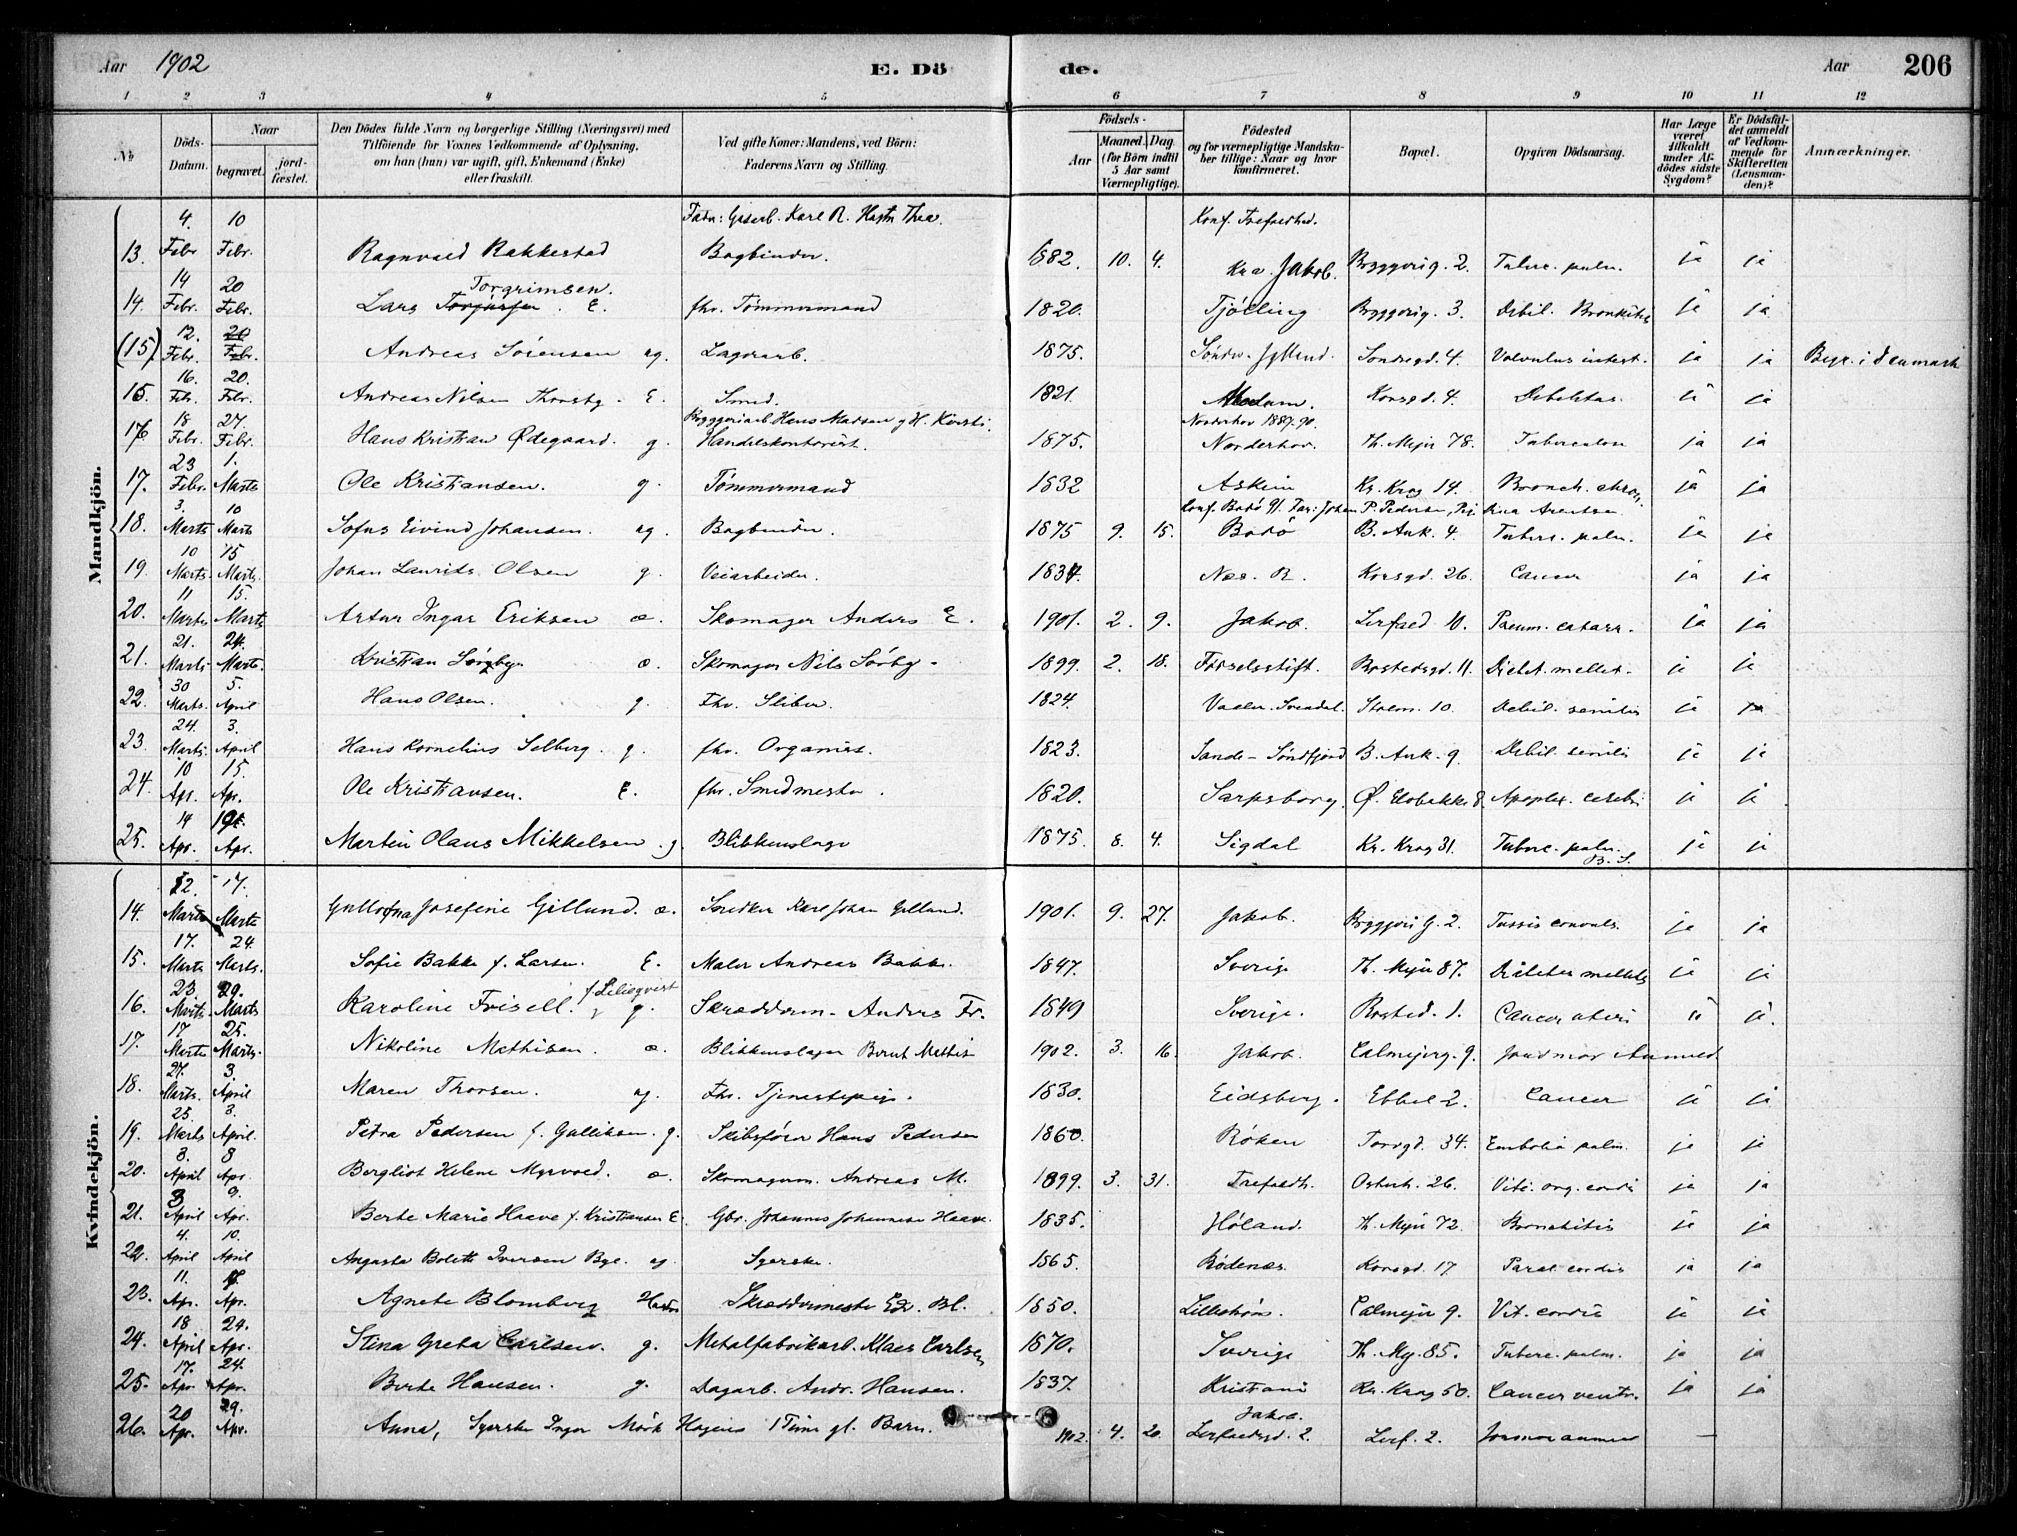 Aar 1902 E. Dö de. Aar 206
1 2 3 4 5 6 7 8 9 10 11 12
No Döds-Datum. Naar begravet. jord-fæstet. Den Dödes fulde Navn og borgerlige Stilling (Næringsvei) med Tilföiende for Voxnes Vedkommende af Oplysning, om han (hun) var ugift, gift, Enkemand (Enke) eller fraskilt. Ved gifte Koner: Mandens, ved Börn: Faderens Navn og Stilling. Födsels- Aar Maaned. Dag. (for Börn indtil 5 Aar samt Værnepligtige). Födested og for værnepligtige Mandskaber tillige: Naar og hvor konfirmeret. Bopæl. Opgiven Dödsaarsag. Har Læge været tilkaldt under Afdödes sidste Sygdom? Er Dödsfaldet anmeldt af Vedkommende for Skifteretten (Lensmanden)? Anmærkninger.
Mandkjön.
13. 4. Febr 10 Febr. Ragnvald Rakkestad Bogbinder. 1882. 10. 4. Kra. Jakob. Bryggerig. 2. Tuberc. pulm. ja ja
14. 14 Febr. 20 Febr. Lars Torgrimsen. E. fhv. Tømmermand 1820. Tjölling Bryggerig. 3. Debil. Bronkitis ja ja
(15) 12. Febr. 20 Febr. Andreas Sörensen ug. Lagerarb. 1875. Söndre Jylland. Söndregd. 4. Volvulus intest. ja ja Begr. i Danmark
15. 16. Febr. 20. Febr. Andreas Nilsen E. Smed. 1821. Modum. Korsgd. 4. Debilitas ja ja
16 18 Febr. 27. Febr. Hans Kristian Ødegaard. g. Handelskontorist. 1875. Norderhov. Th. Mejer 78. Tuberculose ja ja
17. 23 Febr. 1. Marts Ole Kristiansen. g. Tömmermand 1832 Askim Kr. Krag 14. Bronch. chron. ja ja
18. 3. Marts 10 Marts Sofus Eivind Johansen. ug. Bogbinder. 1875 9. 15. Bodö B. Ank. 4. Tuberc. pulm. ja ja
19. 10 Marts. 15 Marts. Johan Laurits Olsen g. Veiarbeider. 1834. Nes. R. Korsgd. 26. Cancer ja ja
20. 11 Marts 15. Marts Artur Ingar Eriksen æ. Skomager Anders E. 1901. 2. 9. Jakob. Lerfald 10. Pneum. catarr. ja ja
21. 21. Marts. 24. Marts. Kristian Sörby æ. Skomager Nils Sörby. 1899. 2. 18. Födselsstift. Brostedsgd. 11. Diabet. mellet. ja ja
22. 30 Marts. 5. April Hans Olsen. g. Fhv. Sliber. 1824. Vaaler. Stolm. 10. Debil. senilis ja ja
23. 24. Marts. 3. April Hans Kornelius Selberg. g. fhv. Organist. 1823. Sande - Söndfjord B. Ank. 9. Debil. senilis ja ja
24. 10 Apr. 15. Apr. Ole Kristiansen. E. fhv. Smedmester. 1820. Sarpsborg. Ø. Elvebakke 8 Apoplex. cerebri ja ja
25. 14 Apr. 19. Apr. Martin Olaus Mikkelsen g. Blikkenslager 1875. 8. 4. Sigdal Kr. Krag 31. Tuberc. pulm. ja ja
Kvindekjön.
14. 12. Marts 17. Marts Josefine Gillund. æ. Snedker Karl Johan Gillund. 1901. 9. 27. Jakob. Bryggeri g. 2. Tussis convuls. ja ja
15. 17. Marts 24. Marts. Sofie Bakke f. Larsen E. Maler Andreas Bakke. 1847. Sverige Th. Mejer 87. Diabetes mellitus ja ja
16. 23. Marts. 29. Marts Karoline Frisell. f. Liliequist g. Skræddern. Anders Fr. 1849 Sverige. Brosted. 1. Cancer uteri ja ja.
17. 17 Marts 25. Marts. Nikoline Mathisen. æ. Blikkenslager Bernt Mathis 1902. 3. 16. Jakob. Calmejerg. 9. Jordmor Anmeld
18. 27. Marts. 3. April Maren Thorsen. ug. Fhv. Tjenestepige. 1830. Eidsberg. Ebbel 2. Cancer ja ja
19. 25. Marts 3. April. Petra Pedersen f. Galliksen. g. Skibsförer Hans Pedersen 1860. Röken Torvgd. 34. Embolia pulm. ja ja
20. 3. April 8 Apr. Bergliot Helene Myrvold. æ. Skomagerm. Andreas M. 1899. 3. 31. Trefoldh. Osterh. 26. Viti. org. cordis ja ja
21. 3 April 9. Apr. Berte Marie Haave f. Kristiansen E. Gbr. Johannes Johannesen Haave. 1835. Höland. Th. Mejer 72. Bronchitis ja ja
22. 4. April 10. April Augusta Bolette Iversen Bye. ug. Syerske. 1865. Rödenes. Korsgd. 17. Paral. cordis ja ja
23. 11. Apr. Apr. Agnete Blomberg Hustru Skræddermester Ed. Bl. 1850. Lilleström. Calmejer 9. Vit. cordis ja ja
24. 18 April 24. Apr. Stina Greta Carlsen. g. Metalfabrikarb. Klaes Carlsen 1870. Sverige Th. Mej. 85. Tuberc. pulm. ja ja
25. 17. Apr. 24. Apr. Berte Hansen. g. Dagarb. Andr. Hansen. 1837. Kristiania Kr. Krag 50. Cancer ventr. ja ja
26. 20 Apr. 29. Apr. Anna, Syerske Inger Mörk Hagens 1 Time gl. Barn. 1902. 4. 20. Jakob. Lerfaldsgd. 2. Lerf. 2. —